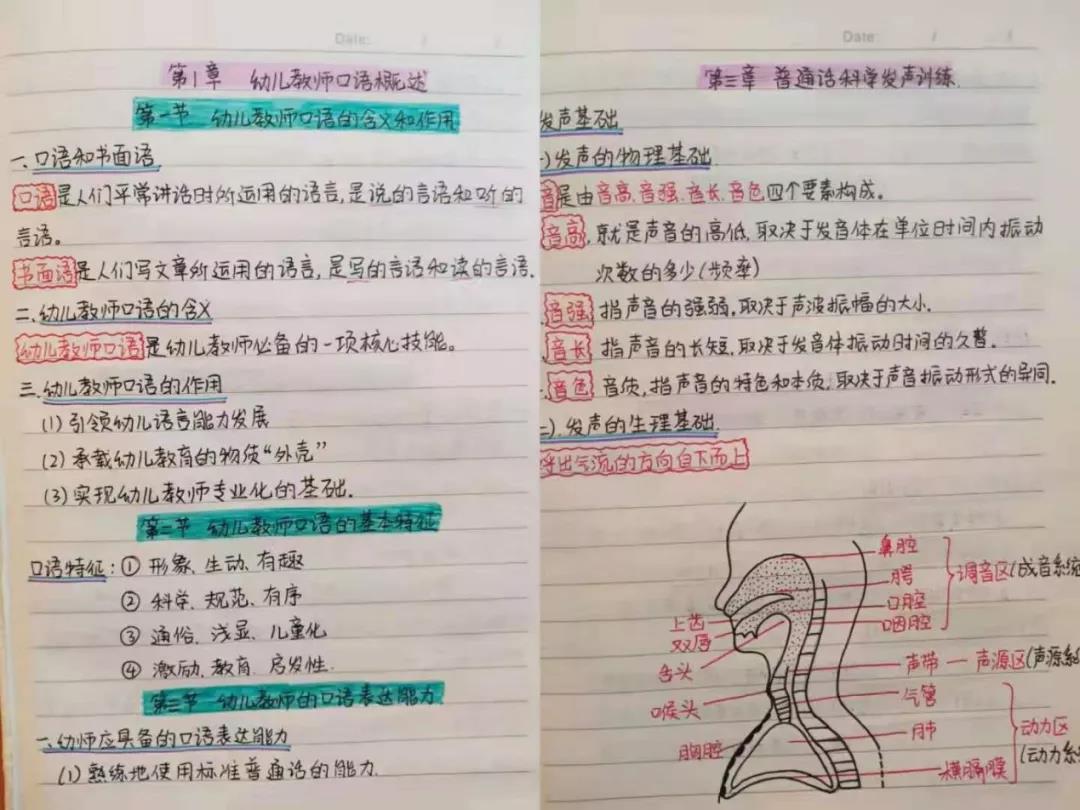 Date: / /
第1章 幼儿教师口语概述
第一节 幼儿教师口语的含义和作用
一、口语和书面语
口语是人们平常讲话时所运用的语言,是说的言语和听的
言语。
书面语是人们写文章所运用的语言,是写的言语和读的言语.
二、幼儿教师口语的含义
幼儿教师口语是幼儿教师必备的一项核心技能。
三、幼儿教师口语的作用
(1) 引领幼儿语言能力发展
(2) 承载幼儿教育的物质“外壳”
(3) 实现幼儿教师专业化的基础.
第二节 幼儿教师口语的基本特征
口语特征:① 形象、生动、有趣
② 科学、规范、有序
③ 通俗、浅显、儿童化
④ 激励、教育、启发性.
第三节 幼儿教师的口语表达能力
一、幼师应具备的口语表达能力
(1) 熟练地使用标准普通话的能力.
Date: / /
第三章 普通话科学发声训练.
发声基础
一)发声的物理基础
音是由音高、音强、音长、音色四个要素构成。
音高,就是声音的高低,取决于发音体在单位时间内振动
次数的多少(频率)
音强 指声音的强弱,取决于声波振幅的大小.
音长 指声音的长短,取决于发音体振动时间的久暂。
音色 音质,指声音的特色和本质,取决于声音振动形式的异同.
二).发声的生理基础.
呼出气流的方向自下而上
鼻腔
腭
口腔
咽腔
调音区(成音系统
上齿
双唇
舌头
声带 — 声源区(声源系
喉头
气管
肺
胸腔
横膈膜
动力区
(动力系